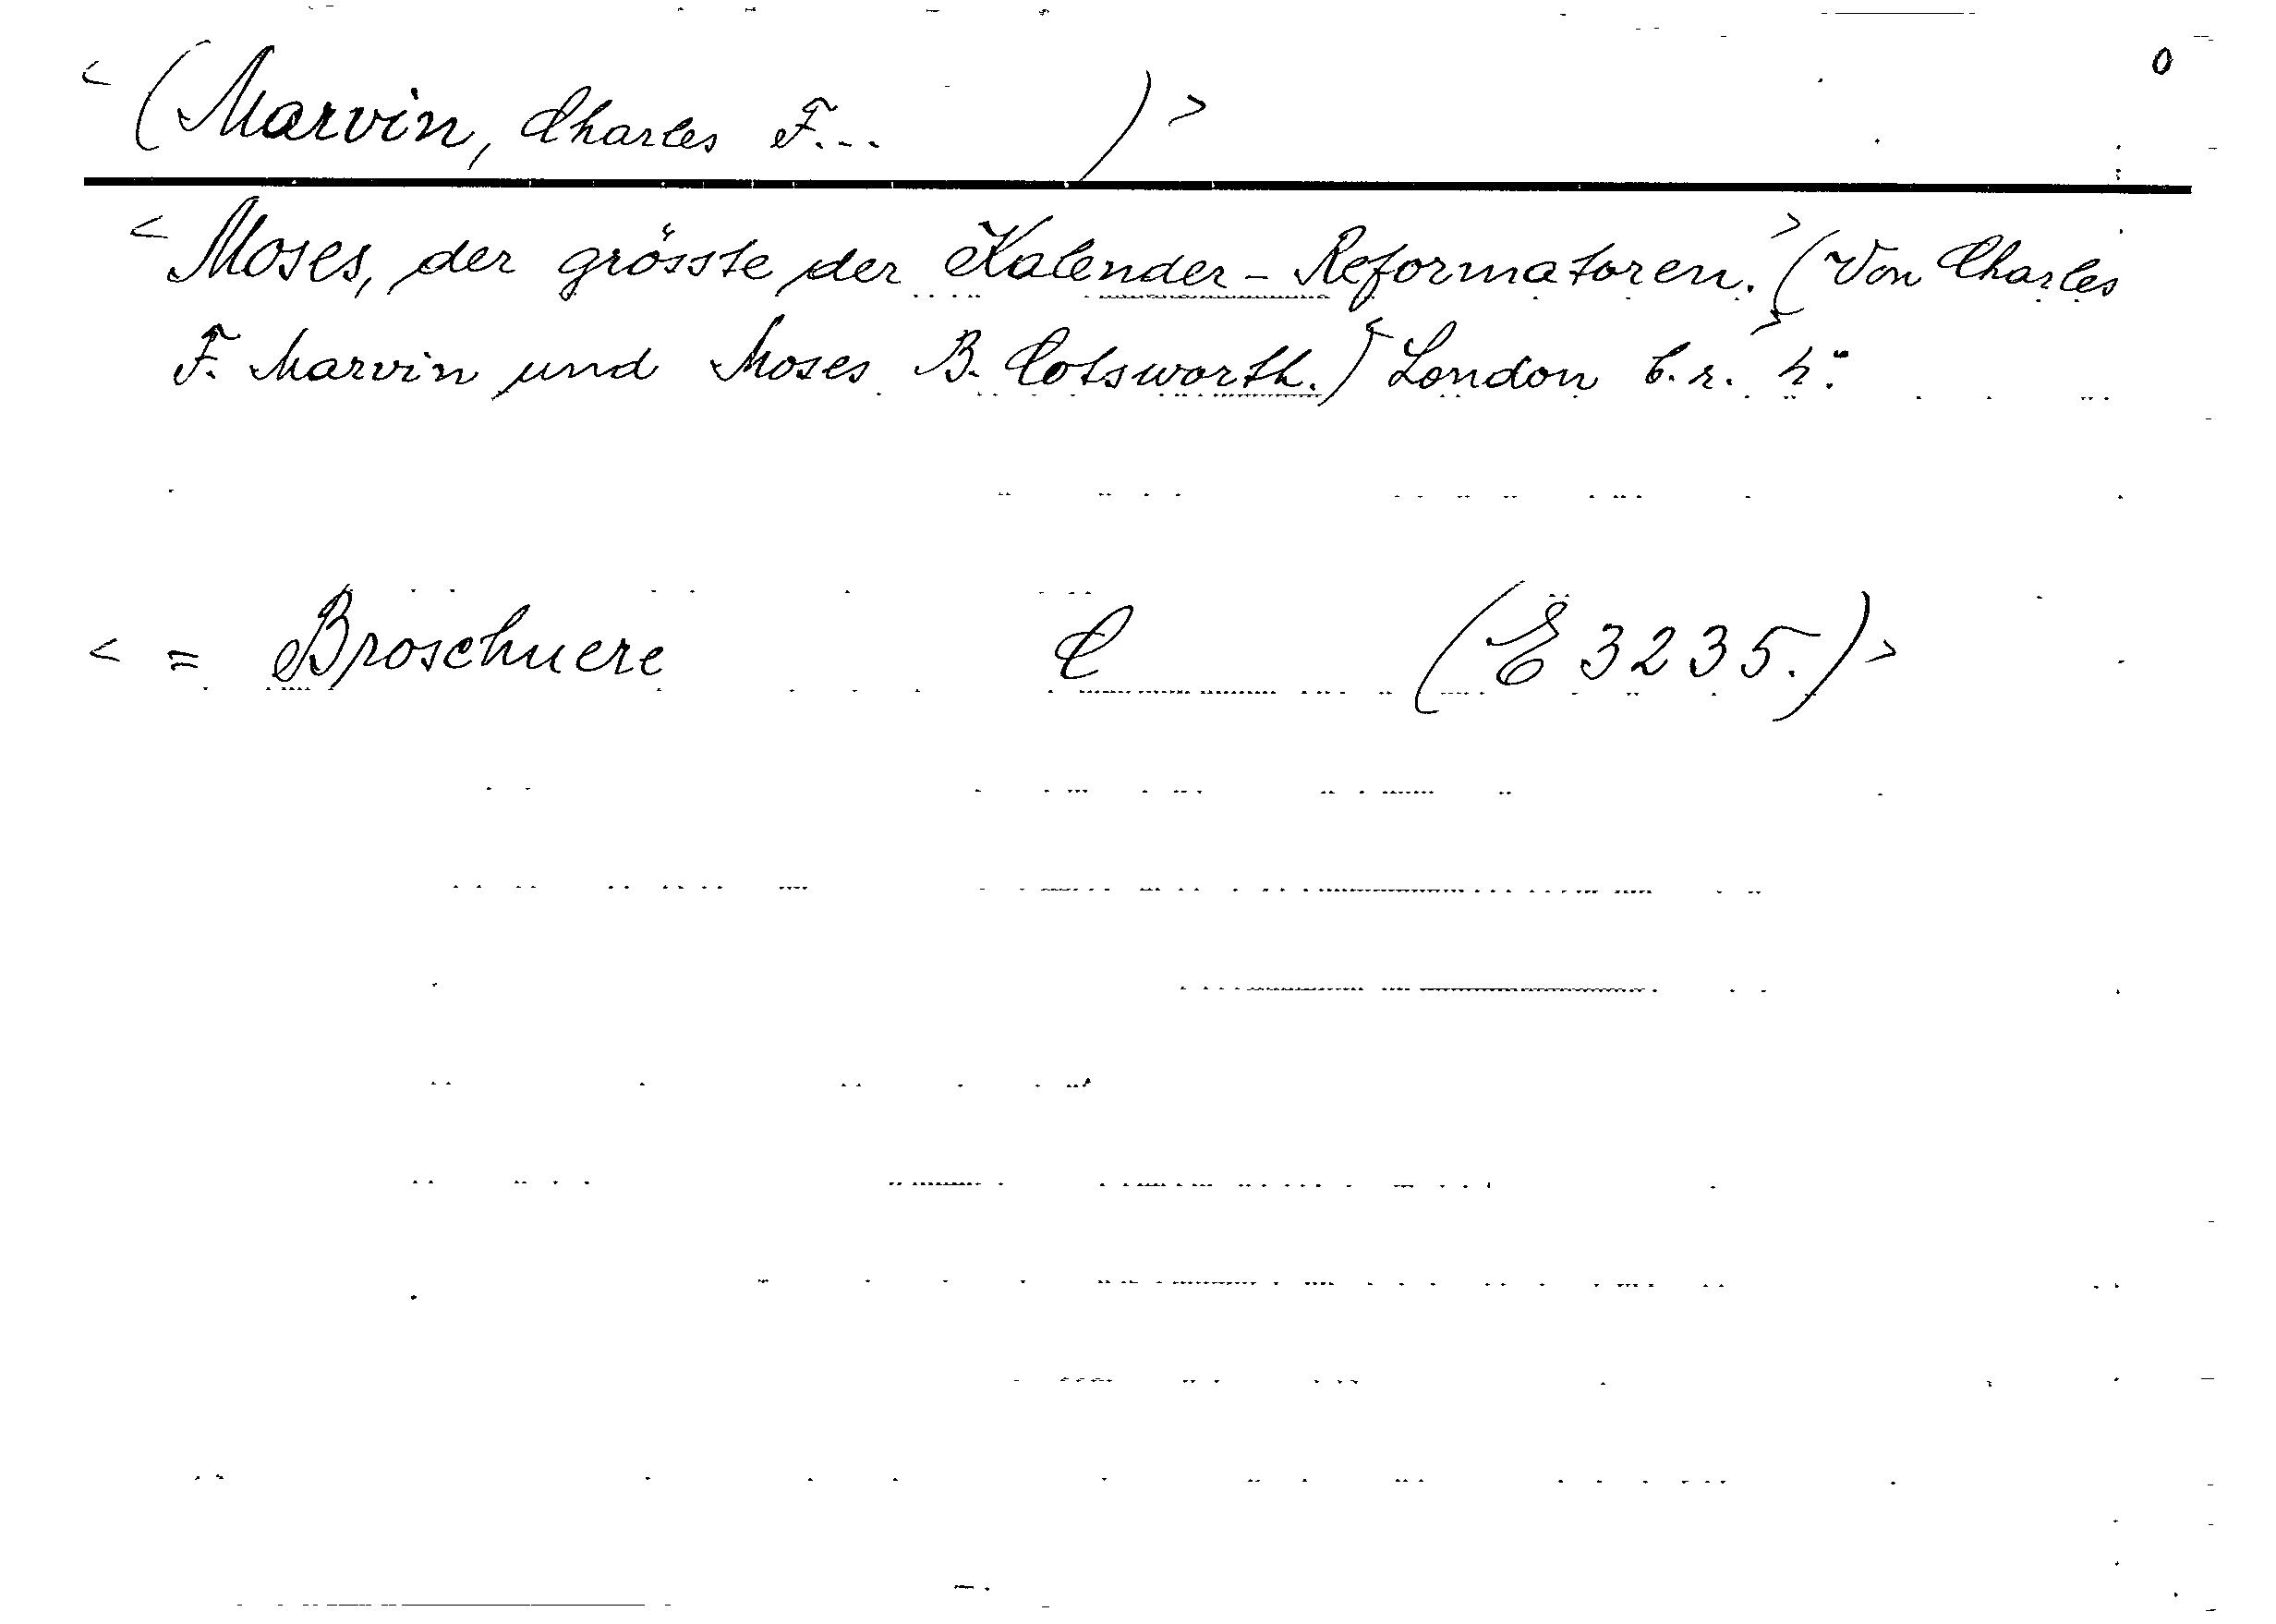 0
<(Marvin, Charles F... )>
<Moses, der grösste der Kalender-Reformatoren.> (Von Charles
F. Marvin und Moses B. Cotsworth.) <London
< = Broschuere C (E 3235.)>